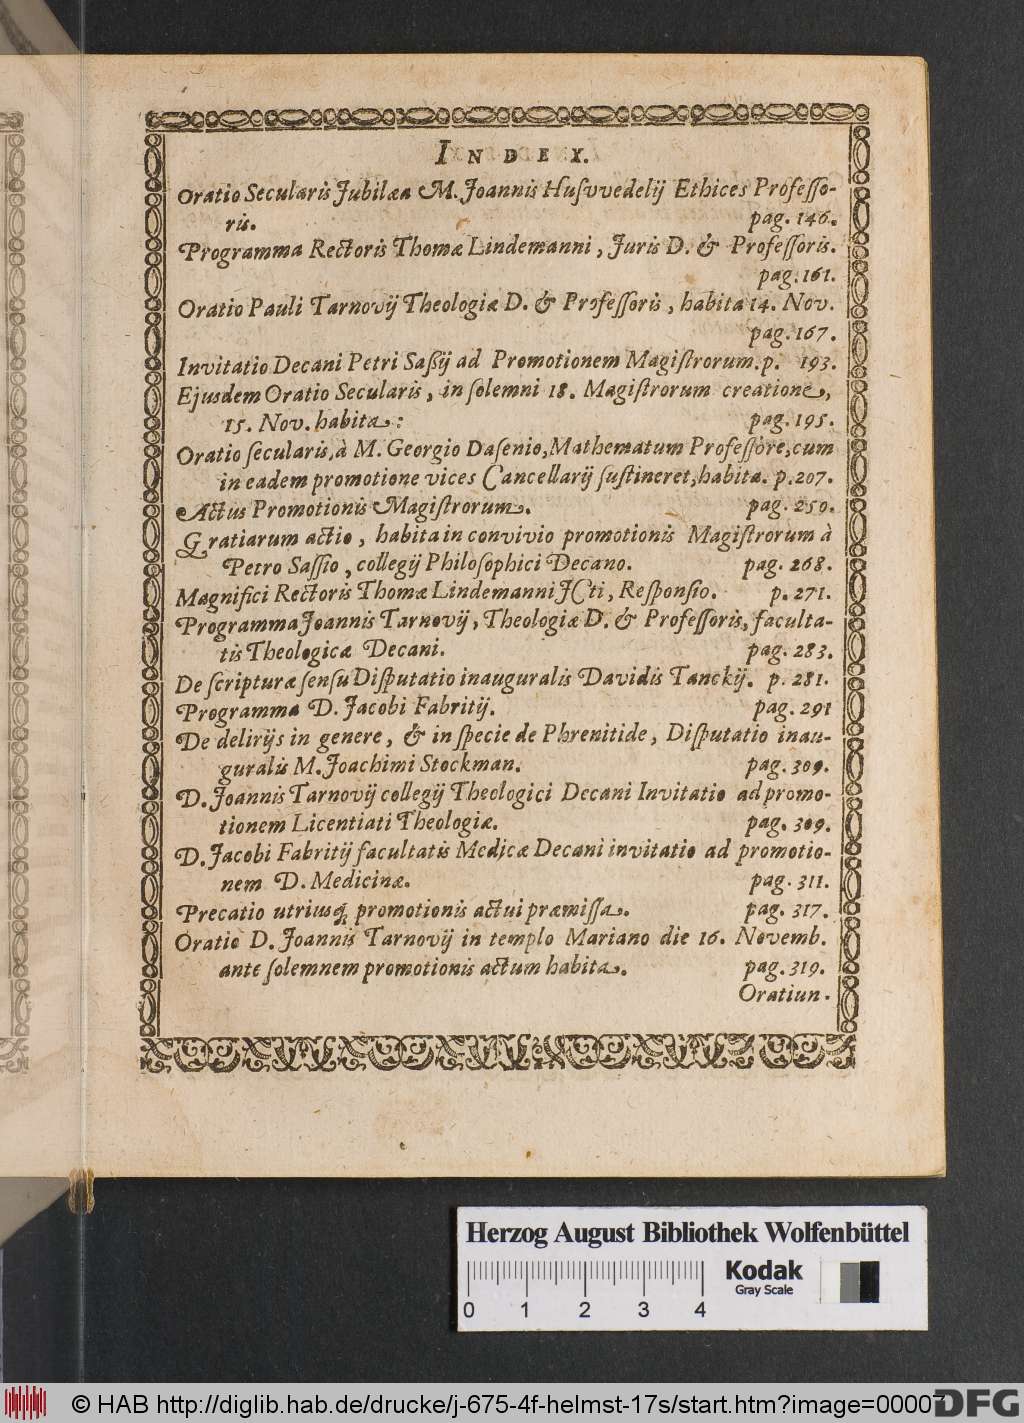 INDEX.
Oratio Secularis Jubilæa M. Joannis Husvvedelij Ethices Professo-
ris. pag. 146.
Programma Rectoris Thomæ Lindemanni, Juris D. & Professoris.
pag. 161.
Oratio Pauli Tarnovij Theologiæ D. & Professoris, habita 14. Nov.
pag. 167.
Invitatio Decani Petri Saßij ad Promotionem Magistrorum. p. 193.
Ejusdem Oratio Secularis, in solemni 18. Magistrorum creatione,
15. Nov. habita: pag. 195.
Oratio secularis, à M. Georgio Dasenio, Mathematum Professore, cum
in eadem promotione vices Cancellarij sustineret, habita. p. 207.
Actus Promotionis Magistrorum. pag. 250.
Gratiarum actio, habita in convivio promotionis Magistrorum à
Petro Sassio, collegij Philosophici Decano. pag. 268.
Magnifici Rectoris Thomæ Lindemanni JCti, Responsio. p. 271.
Programma Joannis Tarnovij, Theologiæ D. & Professoris, faculta-
tis Theologicæ Decani. pag. 283.
De scripturæ sensu Disputatio inauguralis Davidis Tanckij. p. 281.
Programma D. Jacobi Fabritij. pag. 291
De delirijs in genere, & in specie de Phrenitide, Disputatio inau-
guralis M. Joachimi Stockman. pag. 309.
D. Joannis Tarnovij collegij Theologici Decani Invitatio ad promo-
tionem Licentiati Theologiæ. pag. 309.
D. Jacobi Fabritij facultatis Medicæ Decani invitatio ad promotio-
nem D. Medicinæ. pag. 311.
Precatio utriusq; promotionis actui præmissa. pag. 317.
Oratio D. Joannis Tarnovij in templo Mariano die 16. Novemb.
ante solemnem promotionis actum habita. pag. 319.
Oratiun.
Herzog August Bibliothek Wolfenbüttel
Kodak
Gray Scale
0 1 2 3 4
© HAB http://diglib.hab.de/drucke/j-675-4f-helmst-17s/start.htm?image=00007
DFG